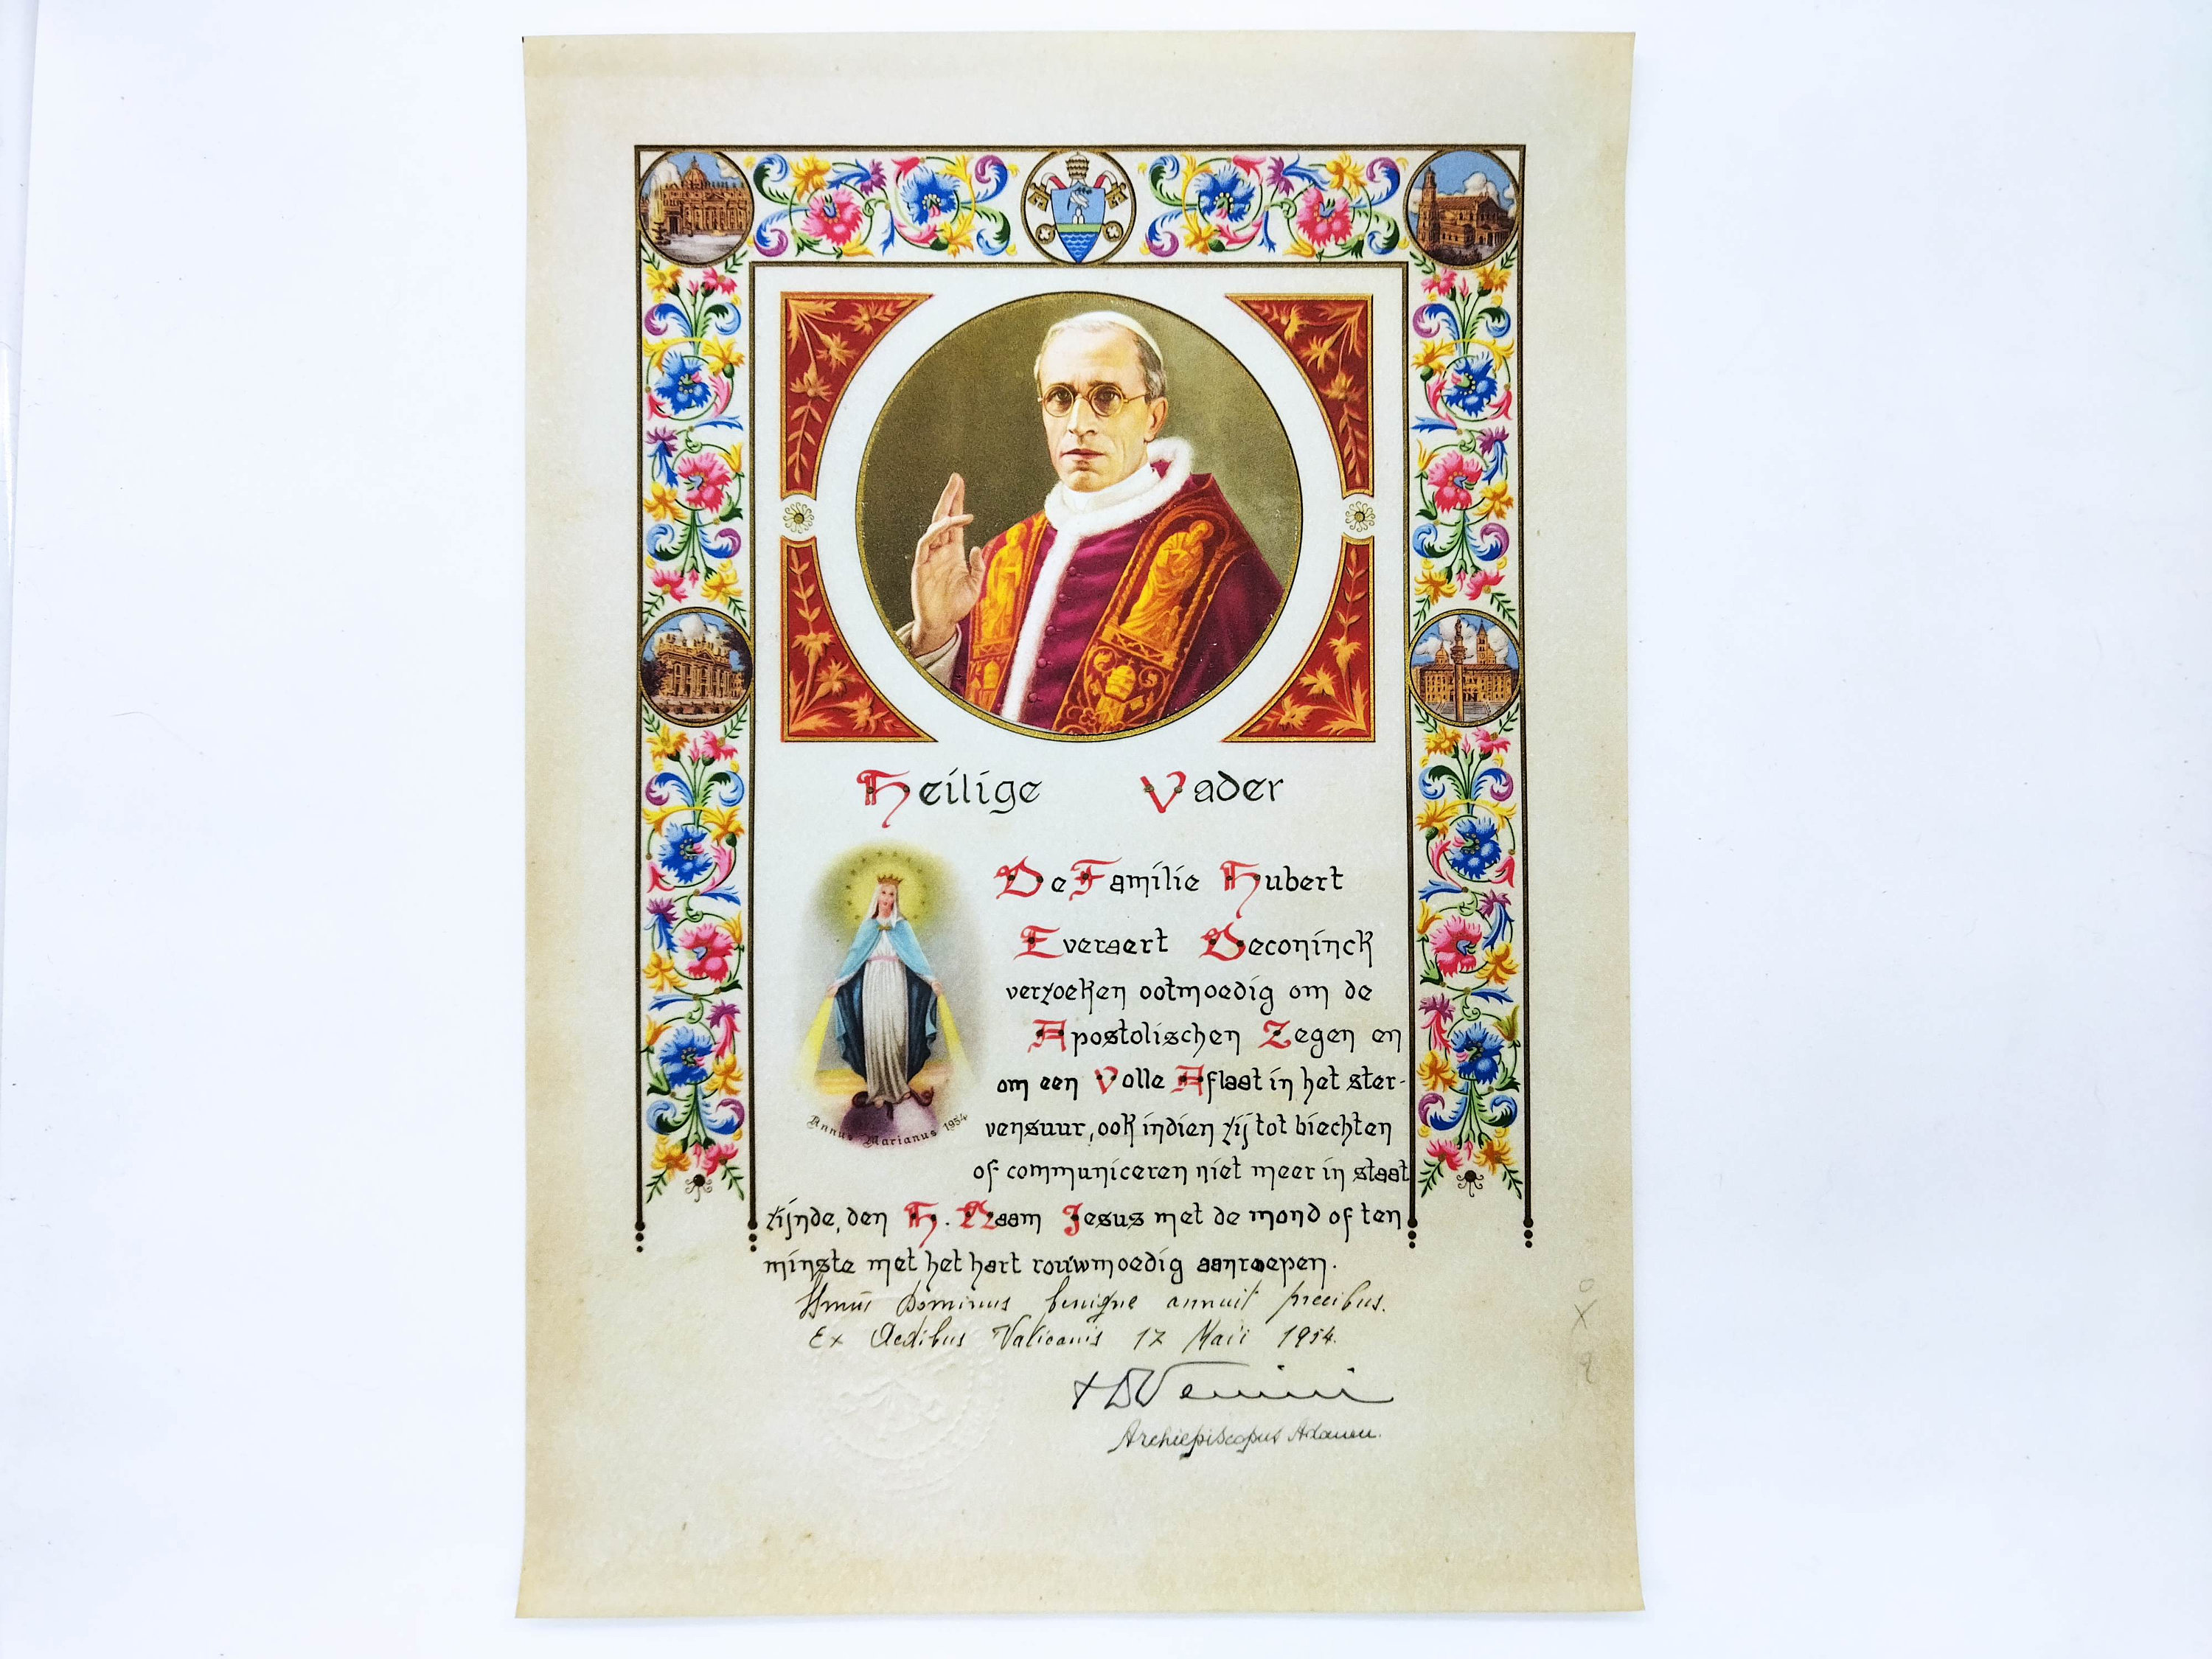 Heilige Vader
De Familie Hubert
Everaert Deconinck
verzoeken ootmoedig om de
Apostolischen Zegen en
om een Volle Aflaat in het ster-
vensuur, ook indien zij tot biechten
of communiceren niet meer in staat
zijnde, den H. Naam Jesus met de mond of ten
minste met het hart rouwmoedig aanroepen.
Annus Marianus 1954
Dominus benigne annuit precibus.
Ex Aedibus Vaticanis 17 Maii 1954.
Archiepiscopus